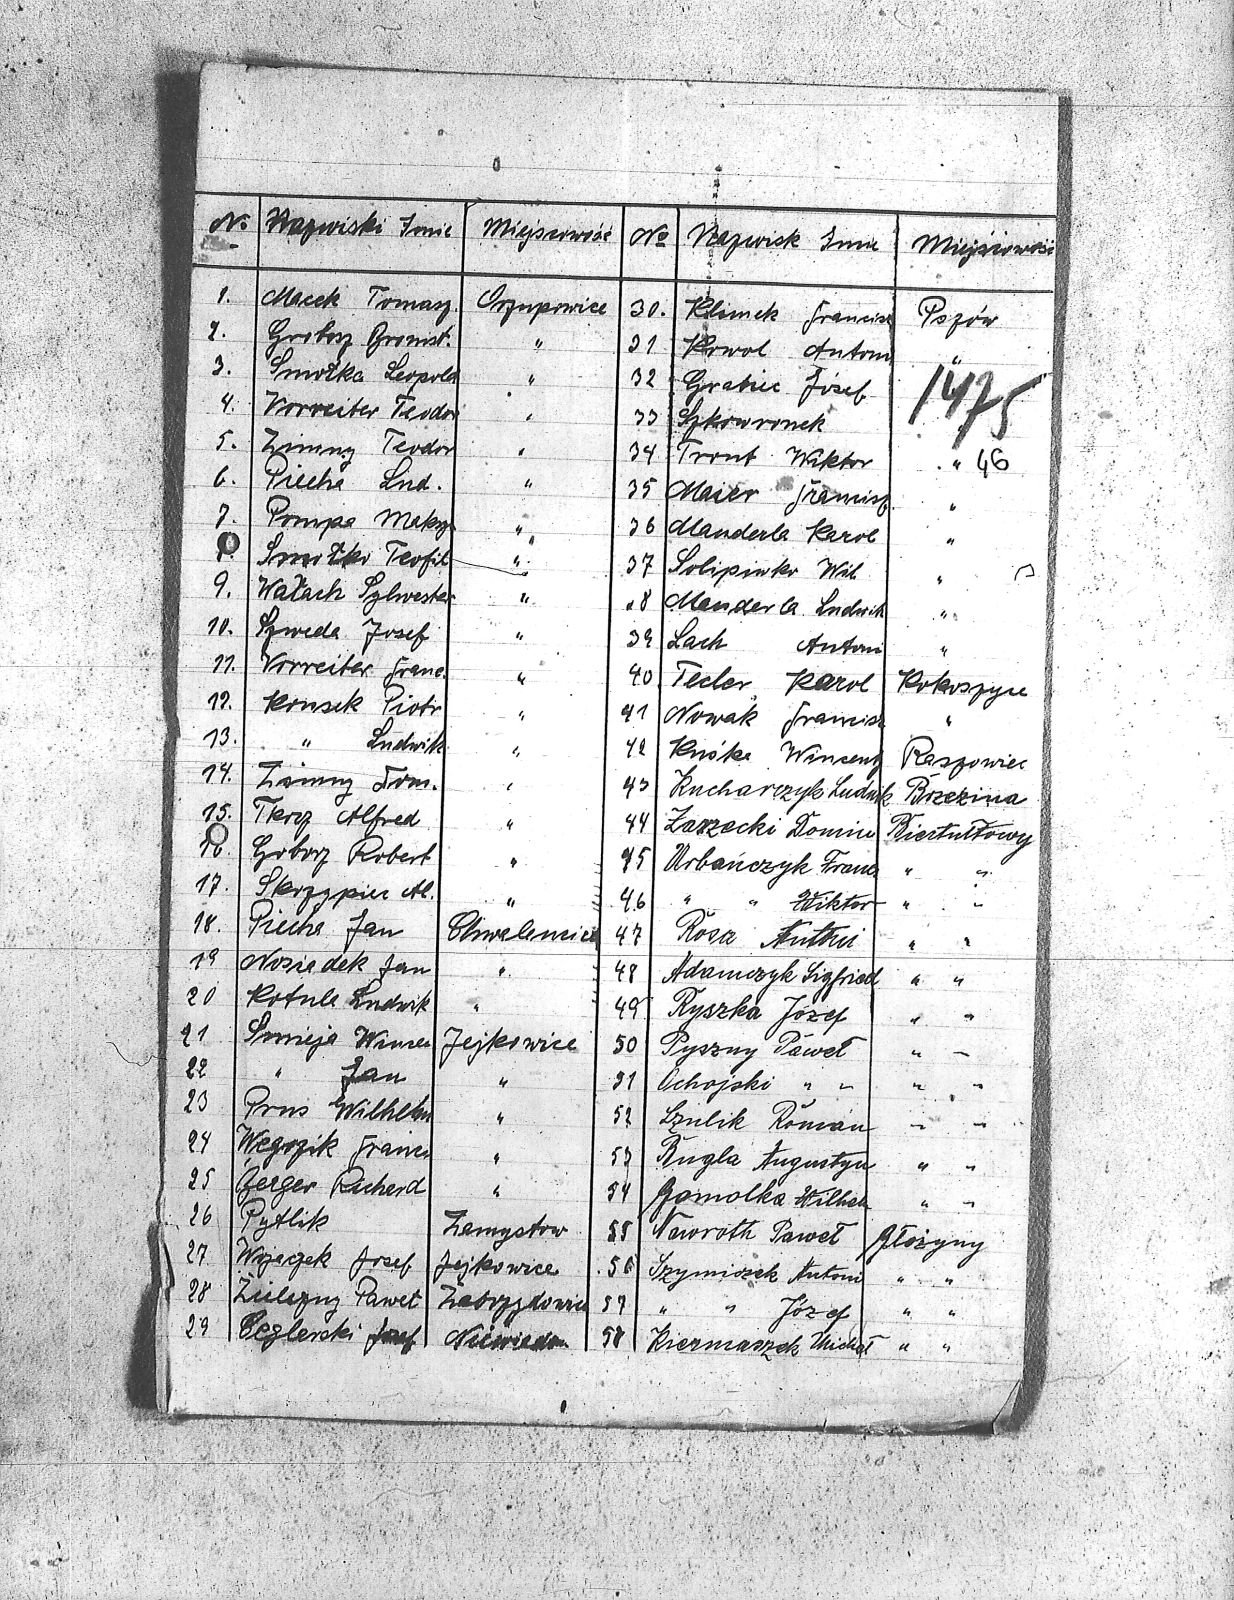 No Nazwiski Imie Miejscowość No Nazwisk Imie Miejscowość
1. Macek Tomasz Orzupowice 30. Klimek Francisz Pszów
2. Grobosz Bronisł. " 31 Kowol Antoni "
3. Smołka Leopold " 32 Grabiec Józef 1475
4. Vorreiter Teodor " 33 Szkowronek
5. Zimny Teodor " 34 Tront Wiktor " 46
6. Piecha Lud. " 35 Maier Francisz "
7. Pompa Maksy " 36 Manderla Karol "
8. Smołka Teofil " 37 Solipiwko Wil "
9. Wałach Sylwester " 38 Manderla Ludwik "
10. Szweda Josef " 39 Lach Antoni "
11. Vorreiter Franc. " 40. Tecler Karol Kokoszyce
12. Konsek Piotr " 41 Nowak Francisz "
13. " Ludwik " 42 Knóka Wincenty Raszowiec
14. Zimny Tom. " 43 Kucharczyk Ludwik Brzezina
15. Tkocz Alfred " 44 Zarzecki Domin Biertułtowy
16. Goborz Robert " 45 Urbańczyk Franc " "
17. Skrzypiec Al. " 46 " " Wiktor " "
18. Piecha Jan Chwalencice 47 Rosa Antoni " "
19 Nosiadek Jan " 48 Adamczyk Sigfried " "
20 Kotula Ludwik " 49 Ryszka Józef " "
21 Smieja Wincen Jejkowice 50 Pyszny Paweł " "
22 " Jan " 51 Ochojski " " " "
23 Prus Wilhelm " 52 Szulik Roman " "
24 Węgrzik Franc " 53 Rugla Augustyn " "
25 Gerger Richard " 54 Gamolka Wilhelm " "
26 Pytlik Zamysłow 55 Nawroth Paweł Głożyny
27 Wojaczek Josef Jejkowice 56 Szymiczek Antoni " "
28 Żeleźny Paweł Zebrzydowice 57 " " Józef " "
29 Ceglerski Josef Niewiadom 58 Kiermaszek Michał " "